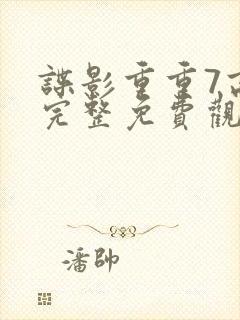 諜影重重7高
完整免費觀
潘帥